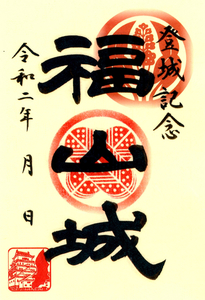 登城記念
福山城
令和二年　月　日